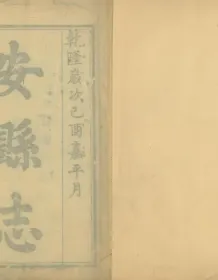 乾隆歲次己酉嘉平月
安縣志